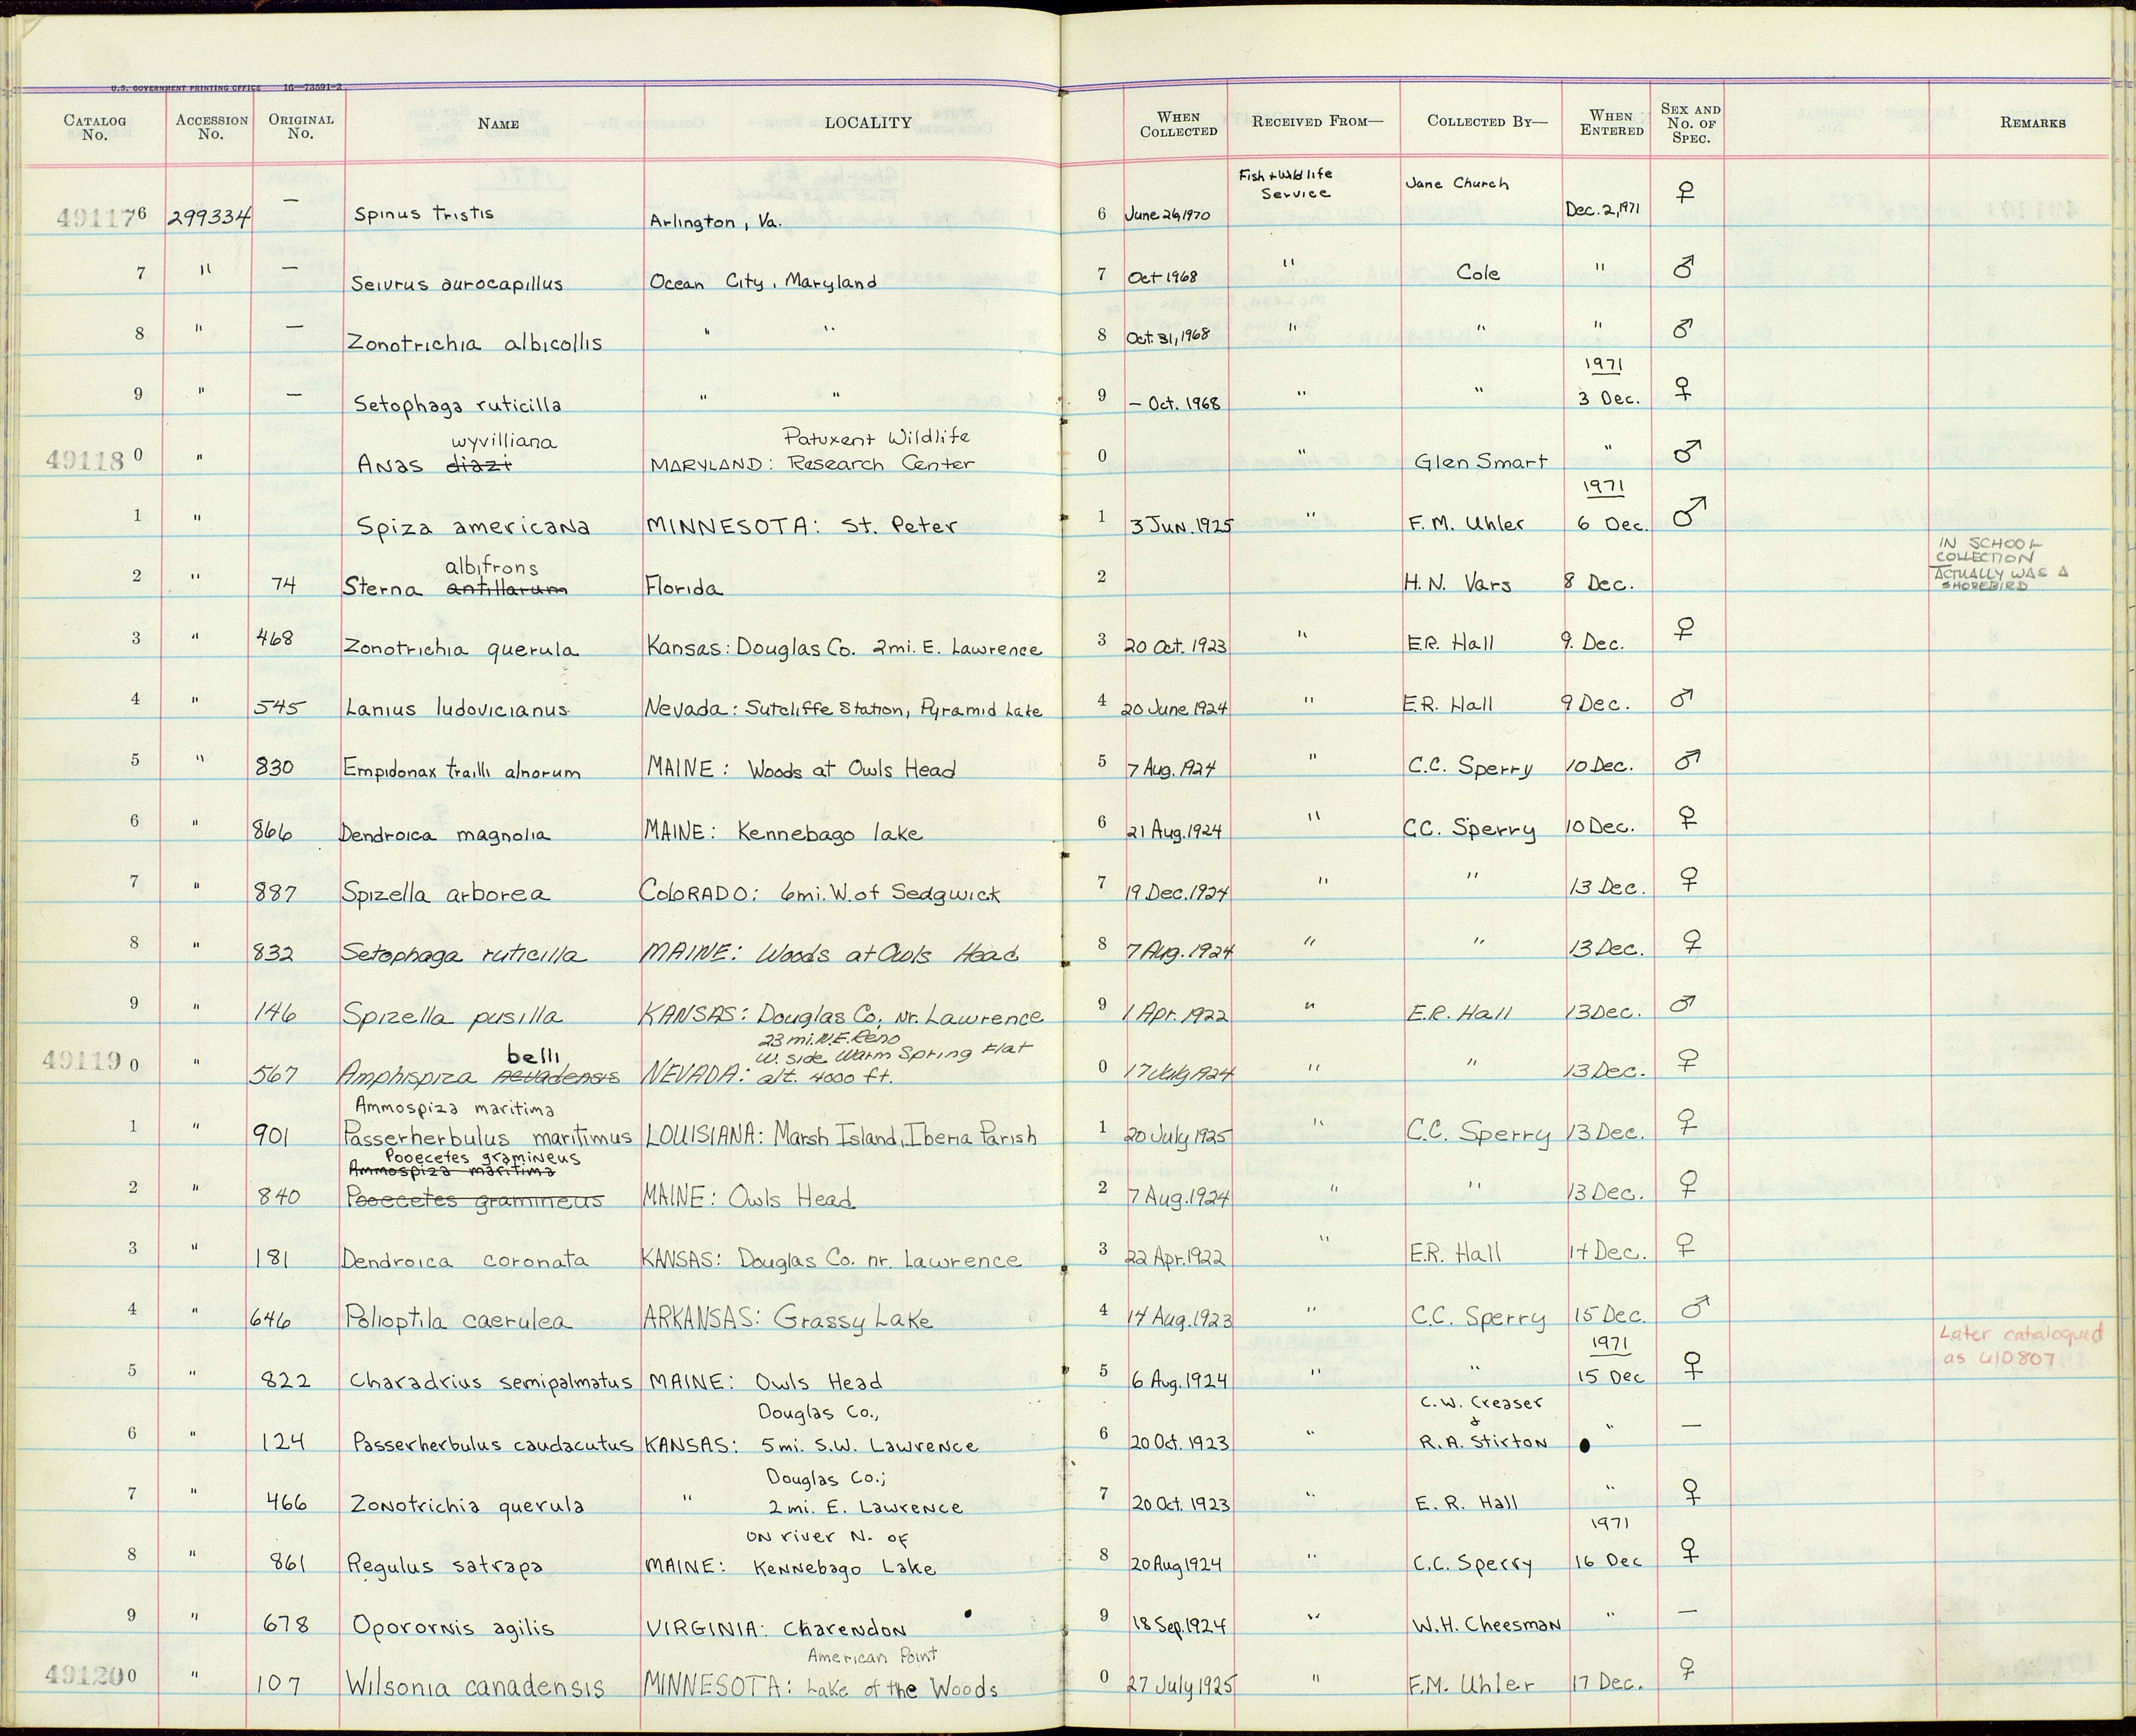 U.S. GOVERNMENT PRINTING OFFICE 16—73591-2
CATALOG No. ACCESSION No. ORIGINAL No. NAME LOCALITY WHEN COLLECTED RECEIVED FROM— COLLECTED BY— WHEN ENTERED SEX AND No. OF SPEC. REMARKS
491176 299334 — Spinus tristis Arlington, Va. 6 June 26, 1970 Fish + Wildlife Service Jane Church Dec. 2, 1971 ♀
7 " — Seiurus aurocapillus Ocean City, Maryland 7 Oct 1968 " Cole " ♂
8 " — Zonotrichia albicollis " " 8 Oct. 31, 1968 " " " ♂
1971
9 " — Setophaga ruticilla " " 9 — Oct. 1968 " " 3 Dec. ♀
wyvilliana Patuxent Wildlife
491180 " Anas diazi MARYLAND: Research Center 0 " Glen Smart " ♂
1971
1 " Spiza americana MINNESOTA: St. Peter 1 3 Jun. 1925 " F. M. Uhler 6 Dec. ♂
albifrons IN SCHOOL COLLECTION
2 " 74 Sterna antillarum Florida 2 H. N. Vars 8 Dec. ACTUALLY WAS A SHOREBIRD
3 " 468 Zonotrichia querula Kansas: Douglas Co. 2mi. E. Lawrence 3 20 Oct. 1923 " E.R. Hall 9. Dec. ♀
4 " 545 Lanius ludovicianus Nevada: Sutcliffe Station, Pyramid Lake 4 20 June 1924 " E.R. Hall 9 Dec. ♂
5 " 830 Empidonax trailli alnorum MAINE: Woods at Owls Head 5 7 Aug. 1924 " C.C. Sperry 10 Dec. ♂
6 " 866 Dendroica magnolia MAINE: Kennebago lake 6 21 Aug. 1924 " C.C. Sperry 10 Dec. ♀
7 " 887 Spizella arborea COLORADO: 6mi. W. of Sedgwick 7 19 Dec. 1924 " " 13 Dec. ♀
8 " 832 Setophaga ruticilla MAINE: Woods at Owls Head 8 7 Aug. 1924 " " 13 Dec. ♀
9 " 146 Spizella pusilla KANSAS: Douglas Co. nr. Lawrence 9 1 Apr. 1922 " E.R. Hall 13 Dec. ♂
23 mi. N.E. Reno
belli W. side Warm Spring Flat
491190 " 567 Amphispiza nevadensis NEVADA: alt. 4000 ft. 0 17 July 1924 " " 13 Dec. ♀
Ammospiza maritima
1 " 901 Passerherbulus maritimus LOUISIANA: Marsh Island, Iberia Parish 1 20 July 1925 " C.C. Sperry 13 Dec. ♀
Pooecetes gramineus
Ammospiza maritima
2 " 840 Pooecetes gramineus MAINE: Owls Head 2 7 Aug. 1924 " " 13 Dec. ♀
3 " 181 Dendroica coronata KANSAS: Douglas Co. nr. Lawrence 3 22 Apr. 1922 " E.R. Hall 14 Dec. ♀
4 " 646 Polioptila caerulea ARKANSAS: Grassy Lake 4 14 Aug. 1923 " C.C. Sperry 15 Dec. ♂
1971 Later catalogued
5 " 822 Charadrius semipalmatus MAINE: Owls Head 5 6 Aug. 1924 " " 15 Dec ♀ as 410807
Douglas Co., C.W. Creaser &
6 " 124 Passerherbulus caudacutus KANSAS: 5 mi. S.W. Lawrence 6 20 Oct. 1923 " R.A. Stirton " —
Douglas Co.;
7 " 466 Zonotrichia querula " 2 mi. E. Lawrence 7 20 Oct. 1923 " E. R. Hall " ♀
ON river N. of 1971
8 " 861 Regulus satrapa MAINE: Kennebago Lake 8 20 Aug 1924 " C.C. Sperry 16 Dec ♀
9 " 678 Oporornis agilis VIRGINIA: Charendon 9 18 Sep. 1924 " W.H. Cheesman " —
American Point
491200 " 107 Wilsonia canadensis MINNESOTA: Lake of the Woods 0 27 July 1925 " F.M. Uhler 17 Dec. ♀